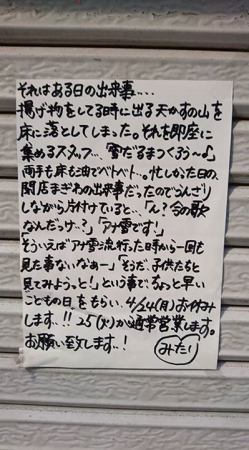 それはある日の出来事‥‥
揚げ物をしてる時に出る天かすの山を
床に落としてしまった。それを即座に
集めるスタッフ…、「雪だるまつくろう〜♪」
両手も床も油でベトベト…。忙しかった日の、
閉店まぎわの出来事だったのでうんざり
しながら片付けていると…、「ん？今の歌
なんだっけ…？」「アナ雪です！」
「そういえばアナ雪流行った時から一回も
見た事ないなぁー」「そうだ、子供たちと
見てみようっと！」という事で、ちょっと早い
こどもの日をもらい、4/24(月)お休み
します‥!! 25(火)から通常営業します。
お願い致します‥！
みたり